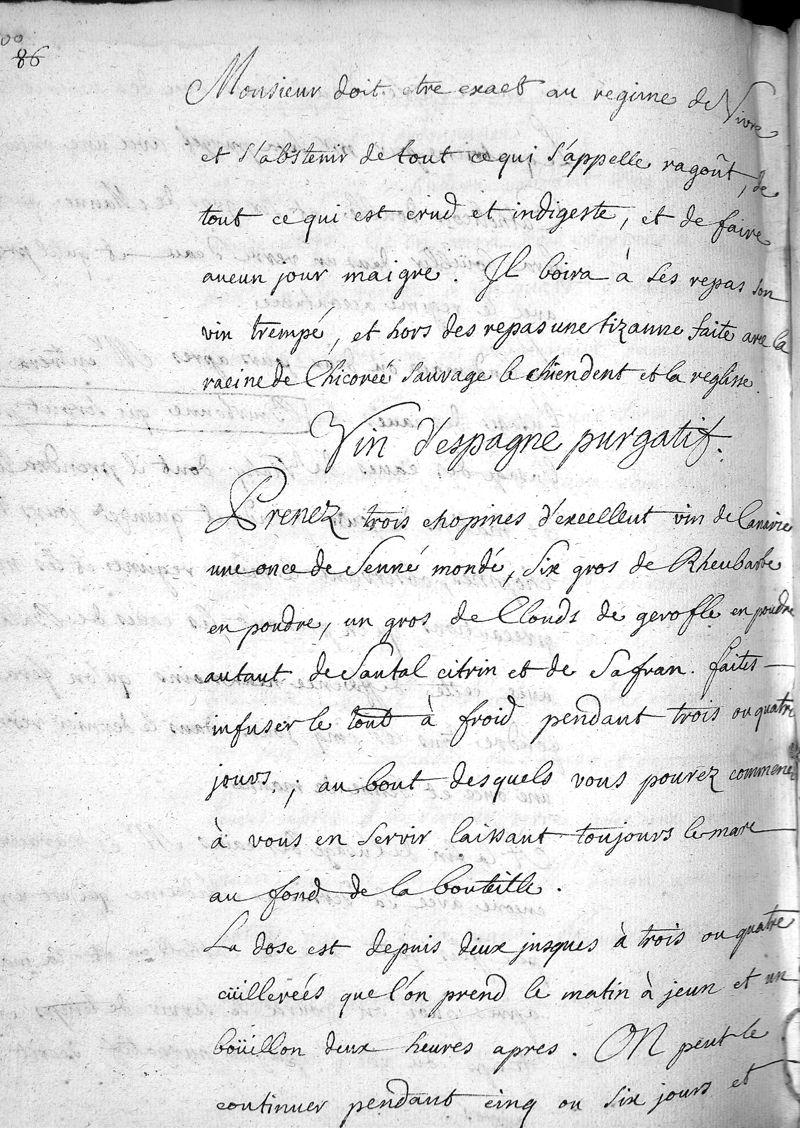 86
Monsieur doit etre exact au regime de Vivre
et s'abstenir de tout ce qui s'appelle ragoût, de
tout ce qui est crud et indigeste, et de faire
aucun jour maigre. Il boira à ses repas son
vin trempé, et hors des repas une tizanne faite avec la
racine de Chicorée sauvage le chiendent et la reglisse.
Vin d'espagne purgatif.
Prenez trois chopines d'excellent vin de Canarie
une once de Senné mondé, six gros de Rheubarbe
en poudre, un gros de Clouds de gerofle en poudre
autant de Santal citrin et de Safran. faites
infuser le tout à froid pendant trois ou quatre
jours, au bout desquels vous pourez commenc
à vous en servir laissant toujours le marc
au fond de la bouteille.
La dose est depuis deux jusques à trois ou quatre
cüillerées que l'on prend le matin à jeun et un
boüillon deux heures apres. On peut le
continuer pendant cinq ou six jours et